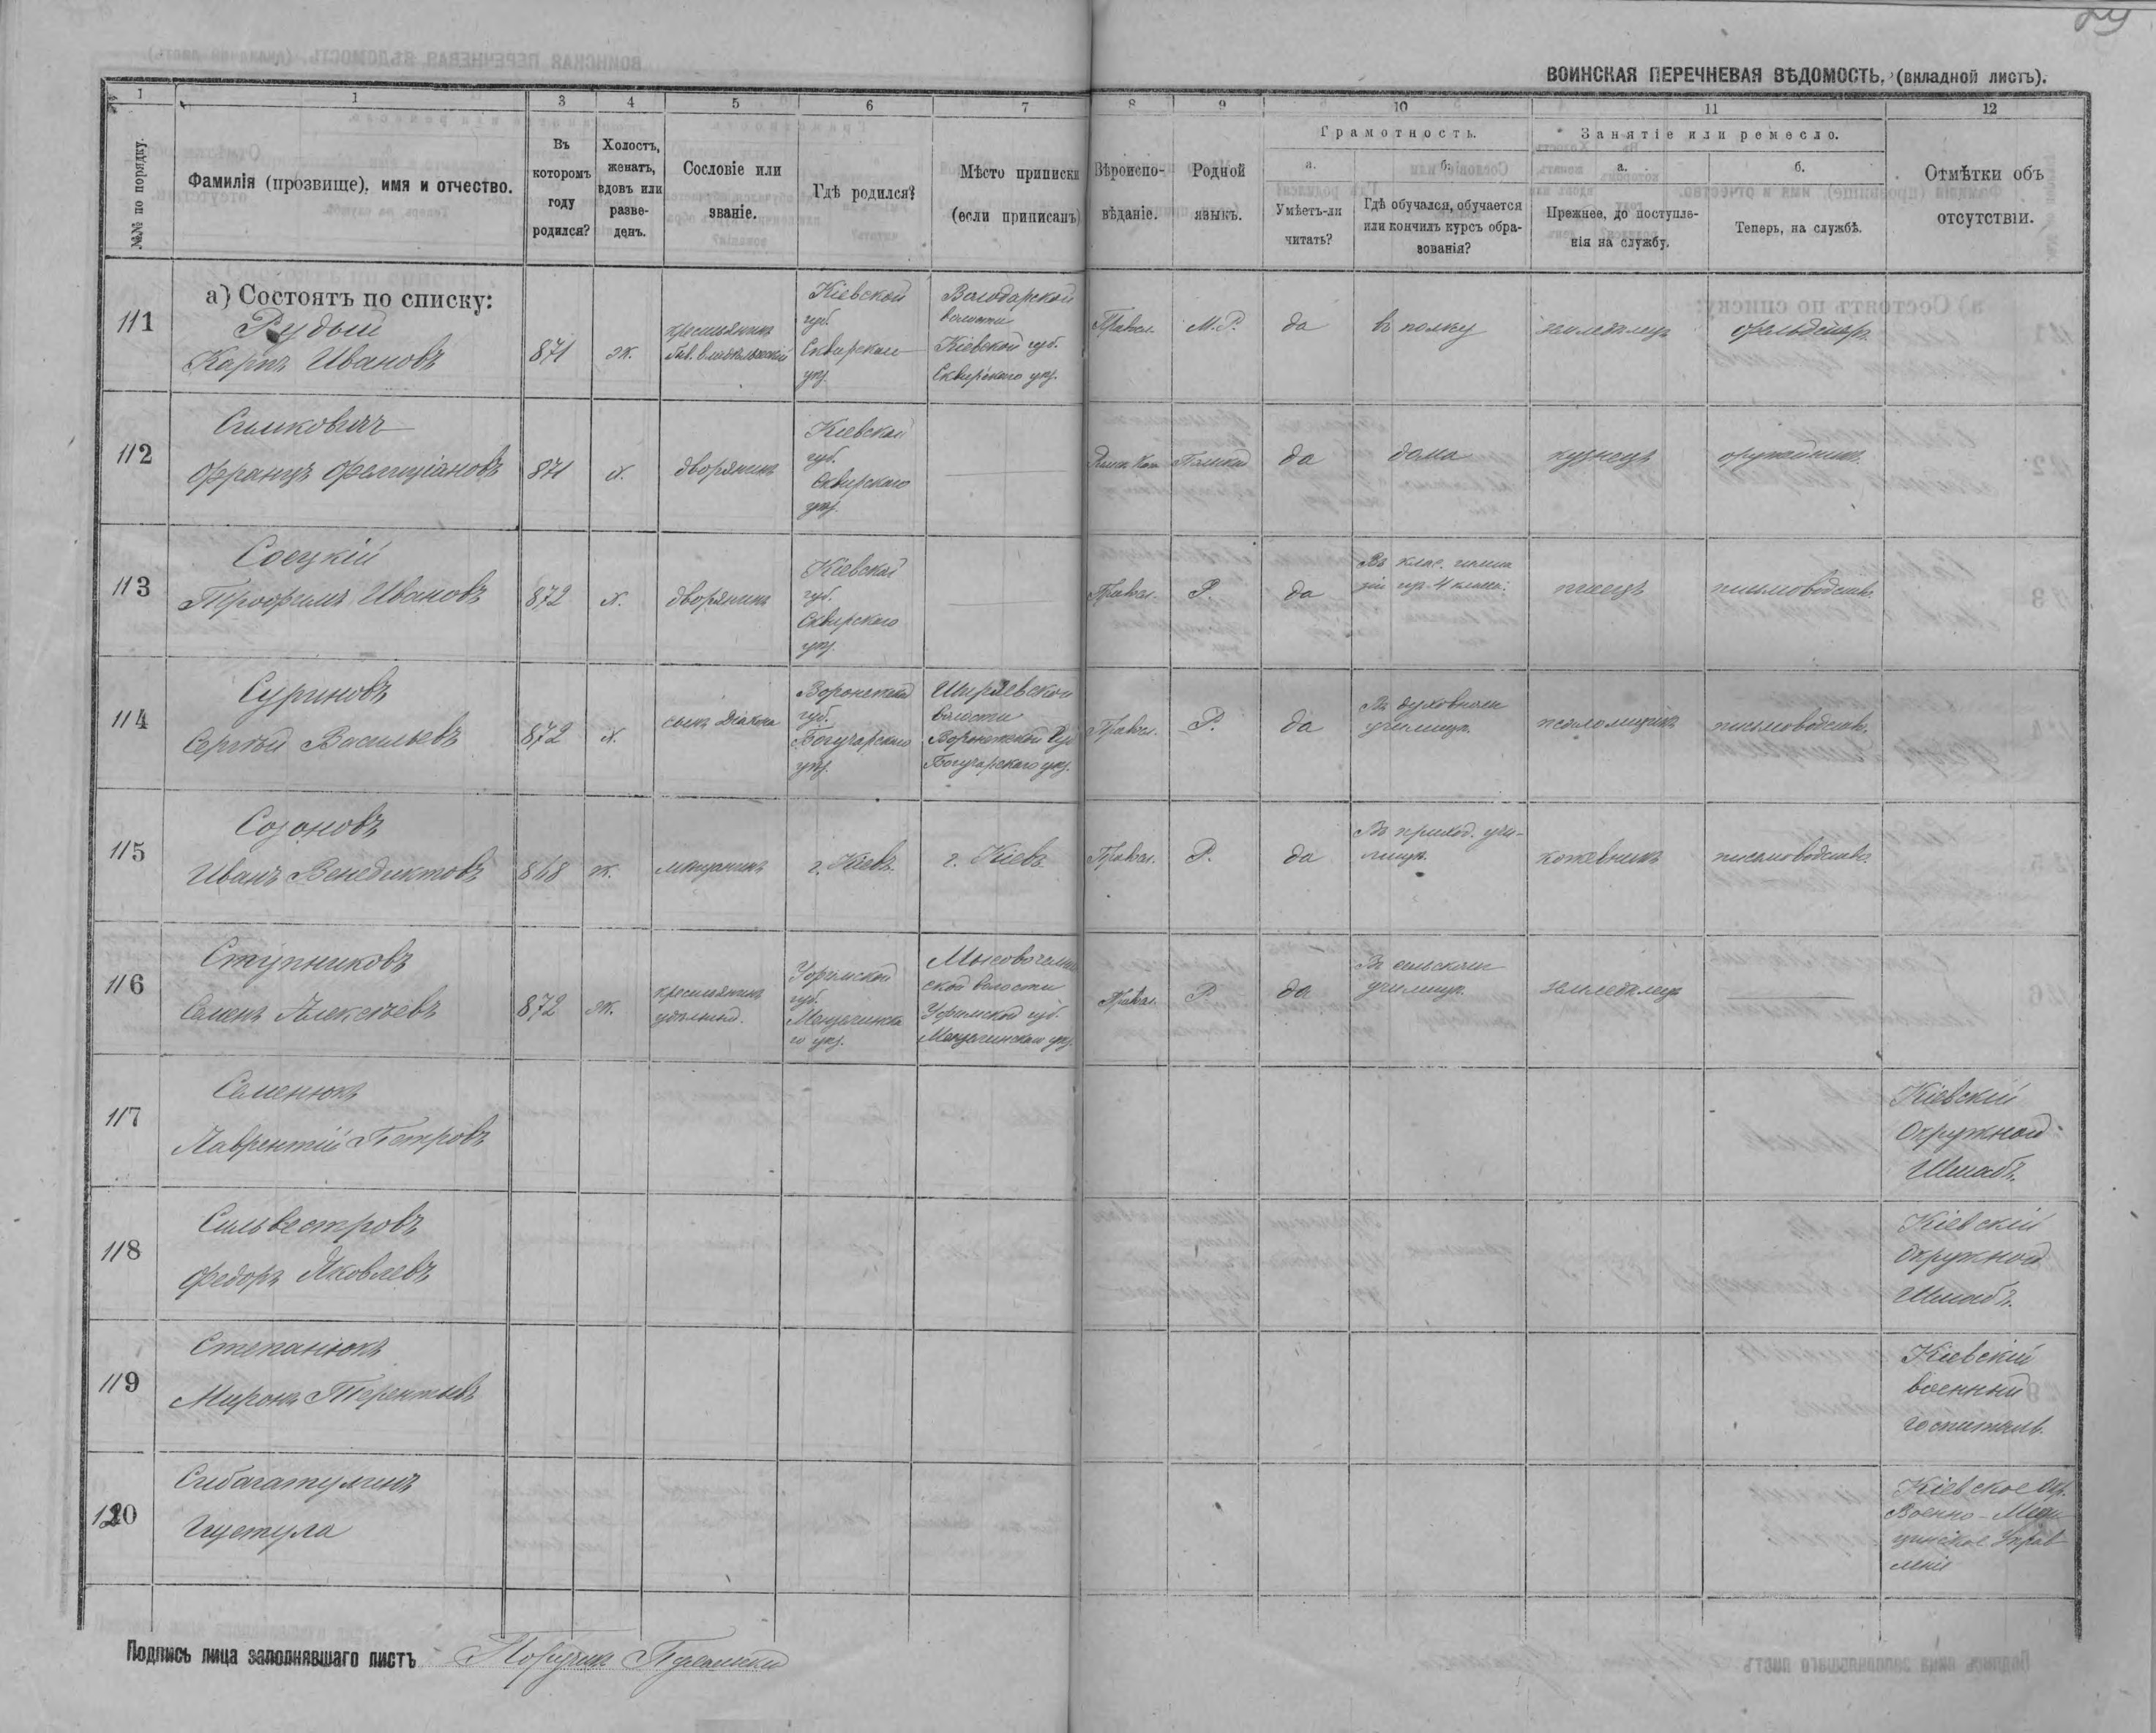 ВОИНСКАЯ ПЕРЕЧНЕВАЯ ВѢДОМОСТЬ. (вкладной листъ).
1 1 3 4 5 6 7 8 9 10 11 12
№№ по порядку.
Фамилія (прозвище), имя и отчество.
Въ которомъ году родился?
Холостъ, женатъ, вдовъ или разве-денъ.
Сословіе или званіе.
Гдѣ родился?
Мѣсто приписки (если приписанъ)
Вѣроиспо-вѣданіе.
Родной языкъ.
Грамотность.
а. Умѣетъ-ли читать?
б. Гдѣ обучался, обучается или кончилъ курсъ обра-зованія?
Занятіе или ремесло.
а. Прежнее, до поступле-нія на службу.
б. Теперь, на службѣ.
Отмѣтки объ отсутствіи.
а) Состоятъ по списку:
111
Рудый
Карпъ Ивановъ
871
ж.
крестьянинъ
Кіевской
губ.
Сквирскаго
уѣз.
Володарской
волости
Кіевской губ.
Сквирскаго уѣз.
Правос.
М.Р.
да
въ полку
земледѣлецъ
фельдшеръ
112
Францъ Фелиціановъ
871
х.
дворянинъ
Кіевской
губ.
Сквирскаго
уѣз.
да
дома
кузнецъ
оружейникъ
113
Соецкій
Трофимъ Ивановъ
872
х.
дворянинъ
Кіевской
губ.
Сквирскаго
уѣз.
Правос.
Р.
да
писецъ
письмоводств.
114
Суриновъ
Сергѣй Васильевъ
872
х.
сынъ Діакона
Воронежской
губ.
Богучарскаго
уѣз.
Ширяевской
волости
Воронежской губ.
Богучарскаго уѣз.
Правос.
Р.
да
Въ духовномъ
училищѣ
псаломщикъ
письмоводств.
115
Созоновъ
Иванъ Венедиктовъ
868
ж.
мѣщанинъ
г. Кіевъ
г. Кіевъ
Правос.
Р.
да
Въ приход. учи-
лищѣ
кожевникъ
письмоводств.
116
Ступниковъ
Семенъ Алексѣевъ
872
ж.
крестьянинъ
удѣльный.
Уфимской
губ.
Мензелинска
го уѣз.
ской волости
Уфимской губ.
Мензелинскаго уѣз.
Правос.
Р
да
Въ сельскомъ
училищѣ
земледѣлецъ
117
Семенюкъ
Лаврентій Петровъ
Кіевскій
Окружной
Штабъ.
118
Сильвестровъ
Федоръ Яковлевъ
Кіевскій
Окружной
Штабъ.
119
Степанюкъ
Миронъ Терентьевъ
Кіевскій
военный
госпиталь.
120
Сибагатулинъ
Кіевское Окр.
Военно-Меди-
цинское Управ
леніе
Подпись лица заполнявшаго листъ Поручик